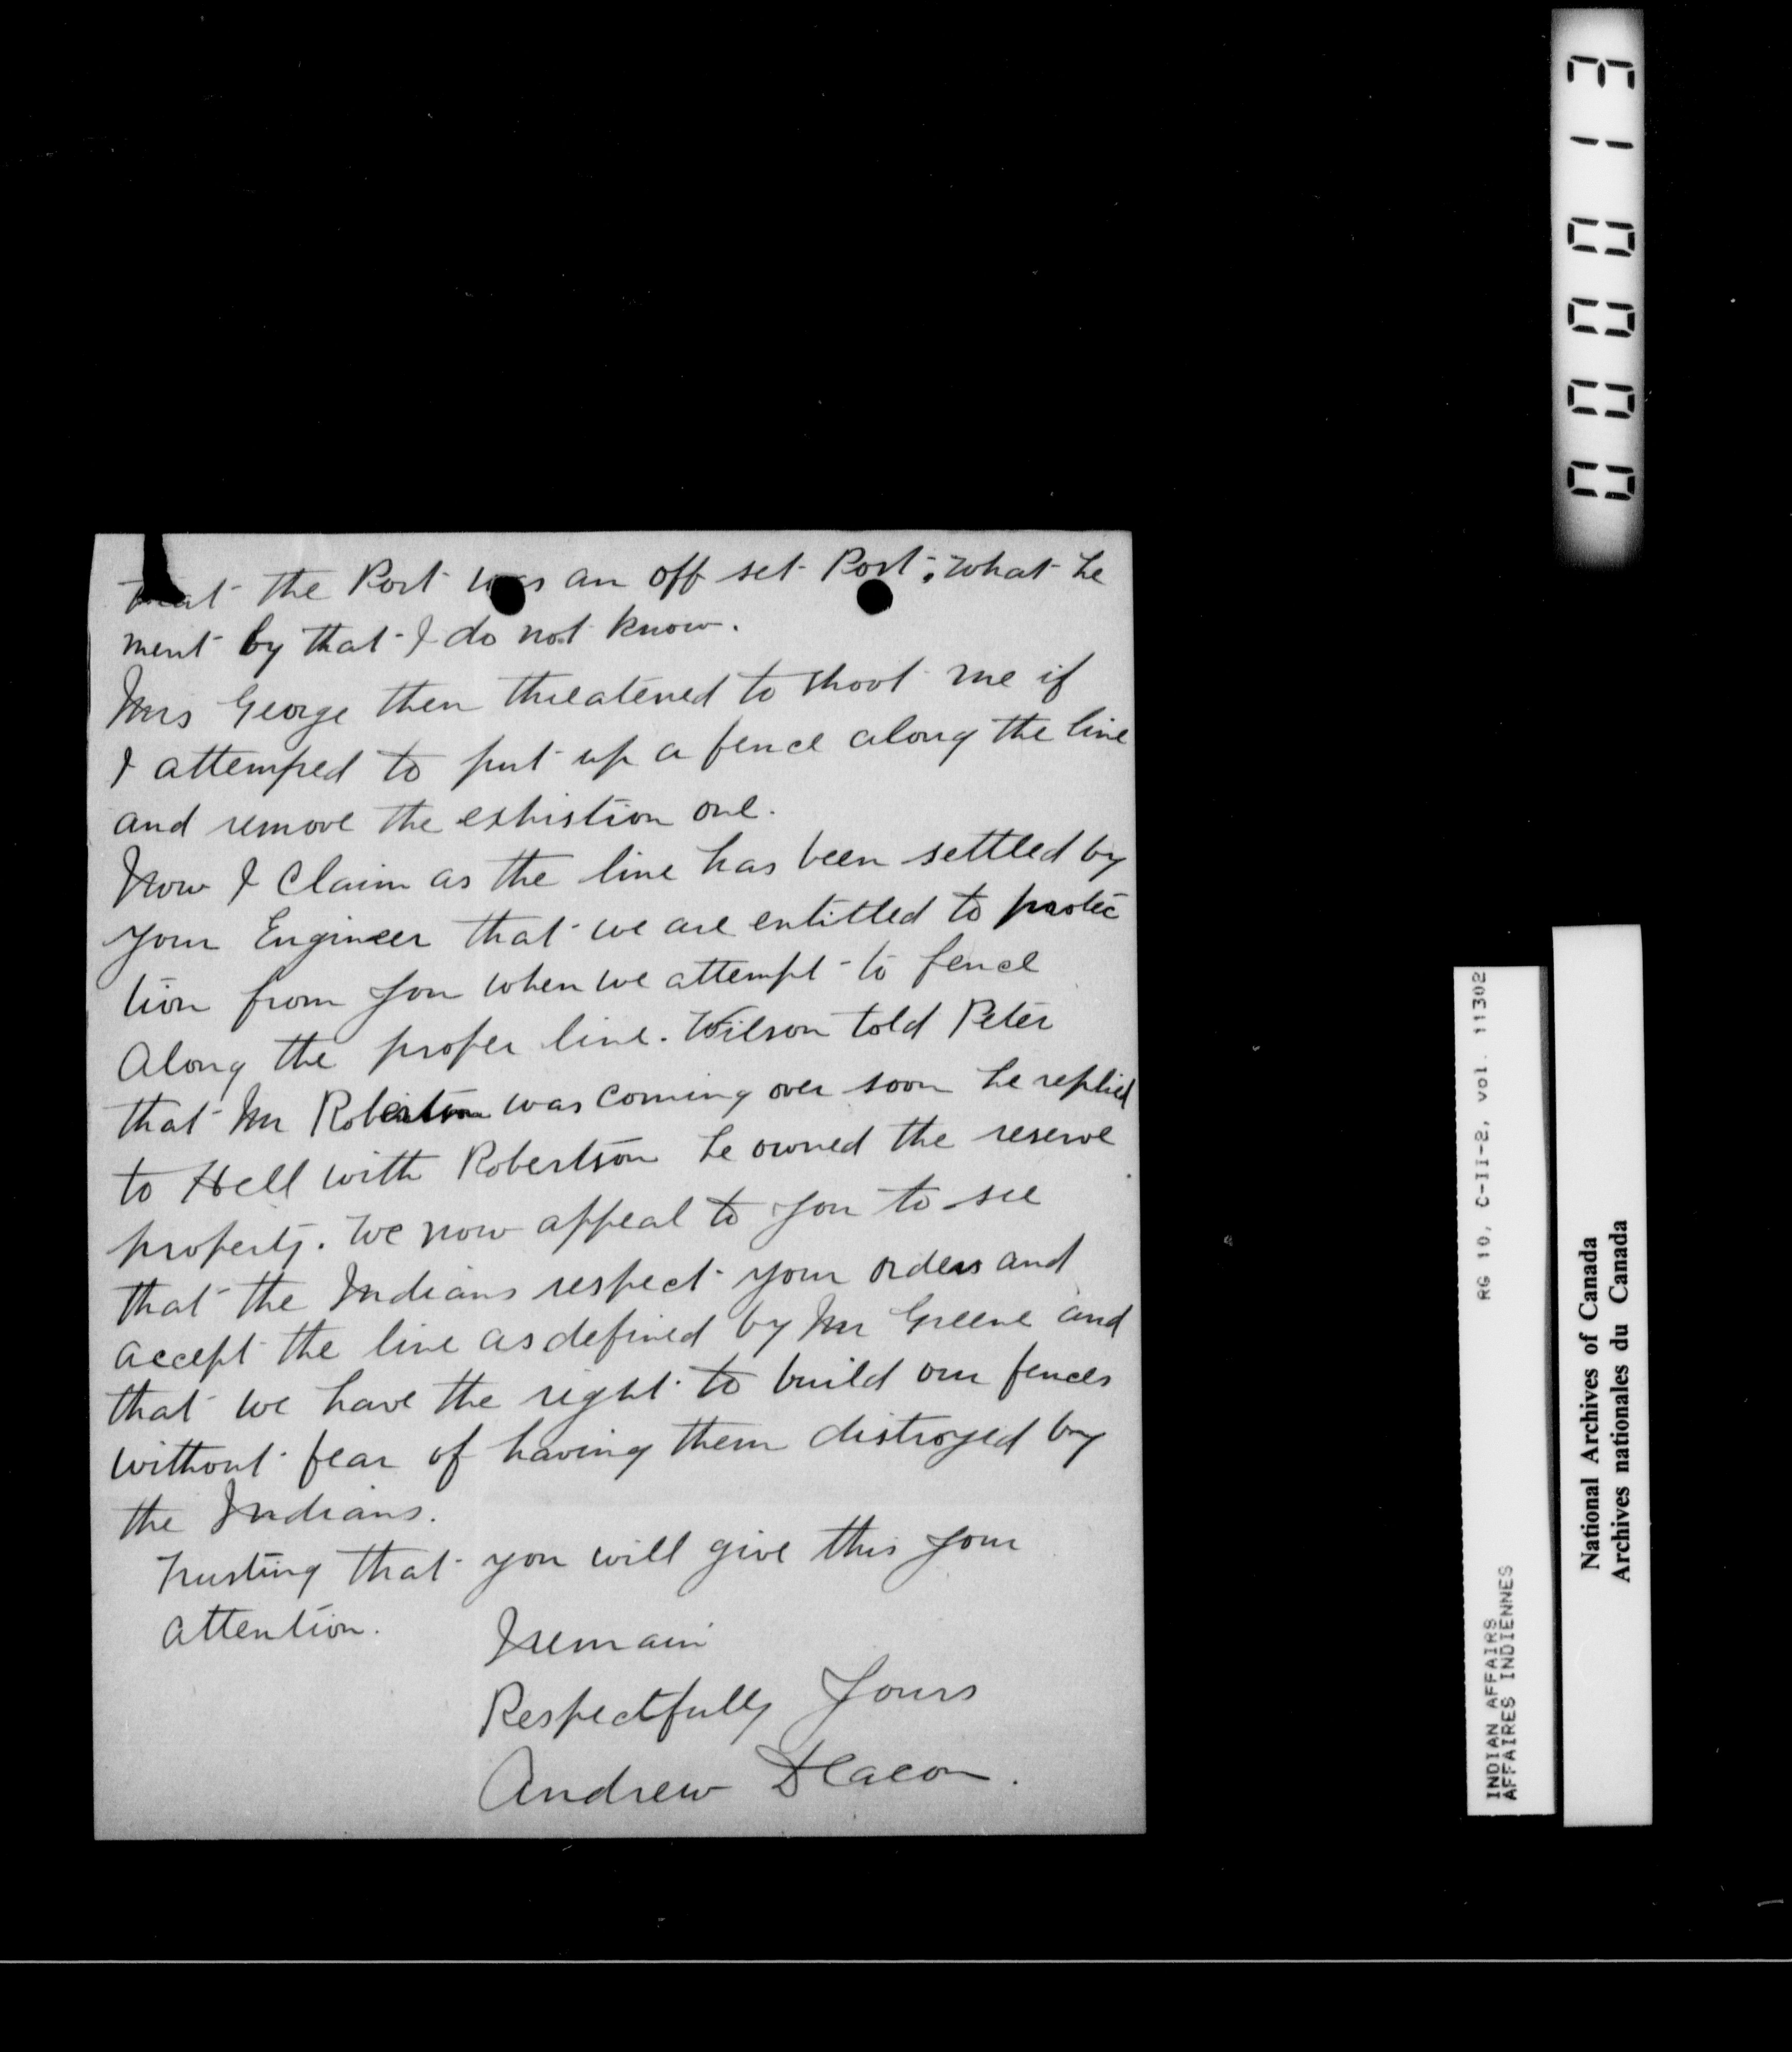 that the Post was an off set Post; what he
ment by that I do not know.
Mrs George then threatened to shoot me if
I attemped to put up a fence along the line
and remove the exhistion one.
Now I Claim as the line has been settled by
your Engineer that we are entitled to protec
tion from you when we attempt to fence
Along the proper line. Wilson told Peter
that Mr Robertson was coming over soon he replied
to Hell with Robertson he owned the reserve
property. We now appeal to you to see
that the Indians respect your orders and
accept the line as defined by Mr Greene and
that we have the right to build our fences
without fear of having them distroyed by
the Indians.
Trusting that you will give this your
attention.
I remain
Respectfully Yours
Andrew Deacon.
000013
RG 10, C-II-2, vol. 11302
INDIAN AFFAIRS
AFFAIRES INDIENNES
National Archives of Canada
Archives nationales du Canada